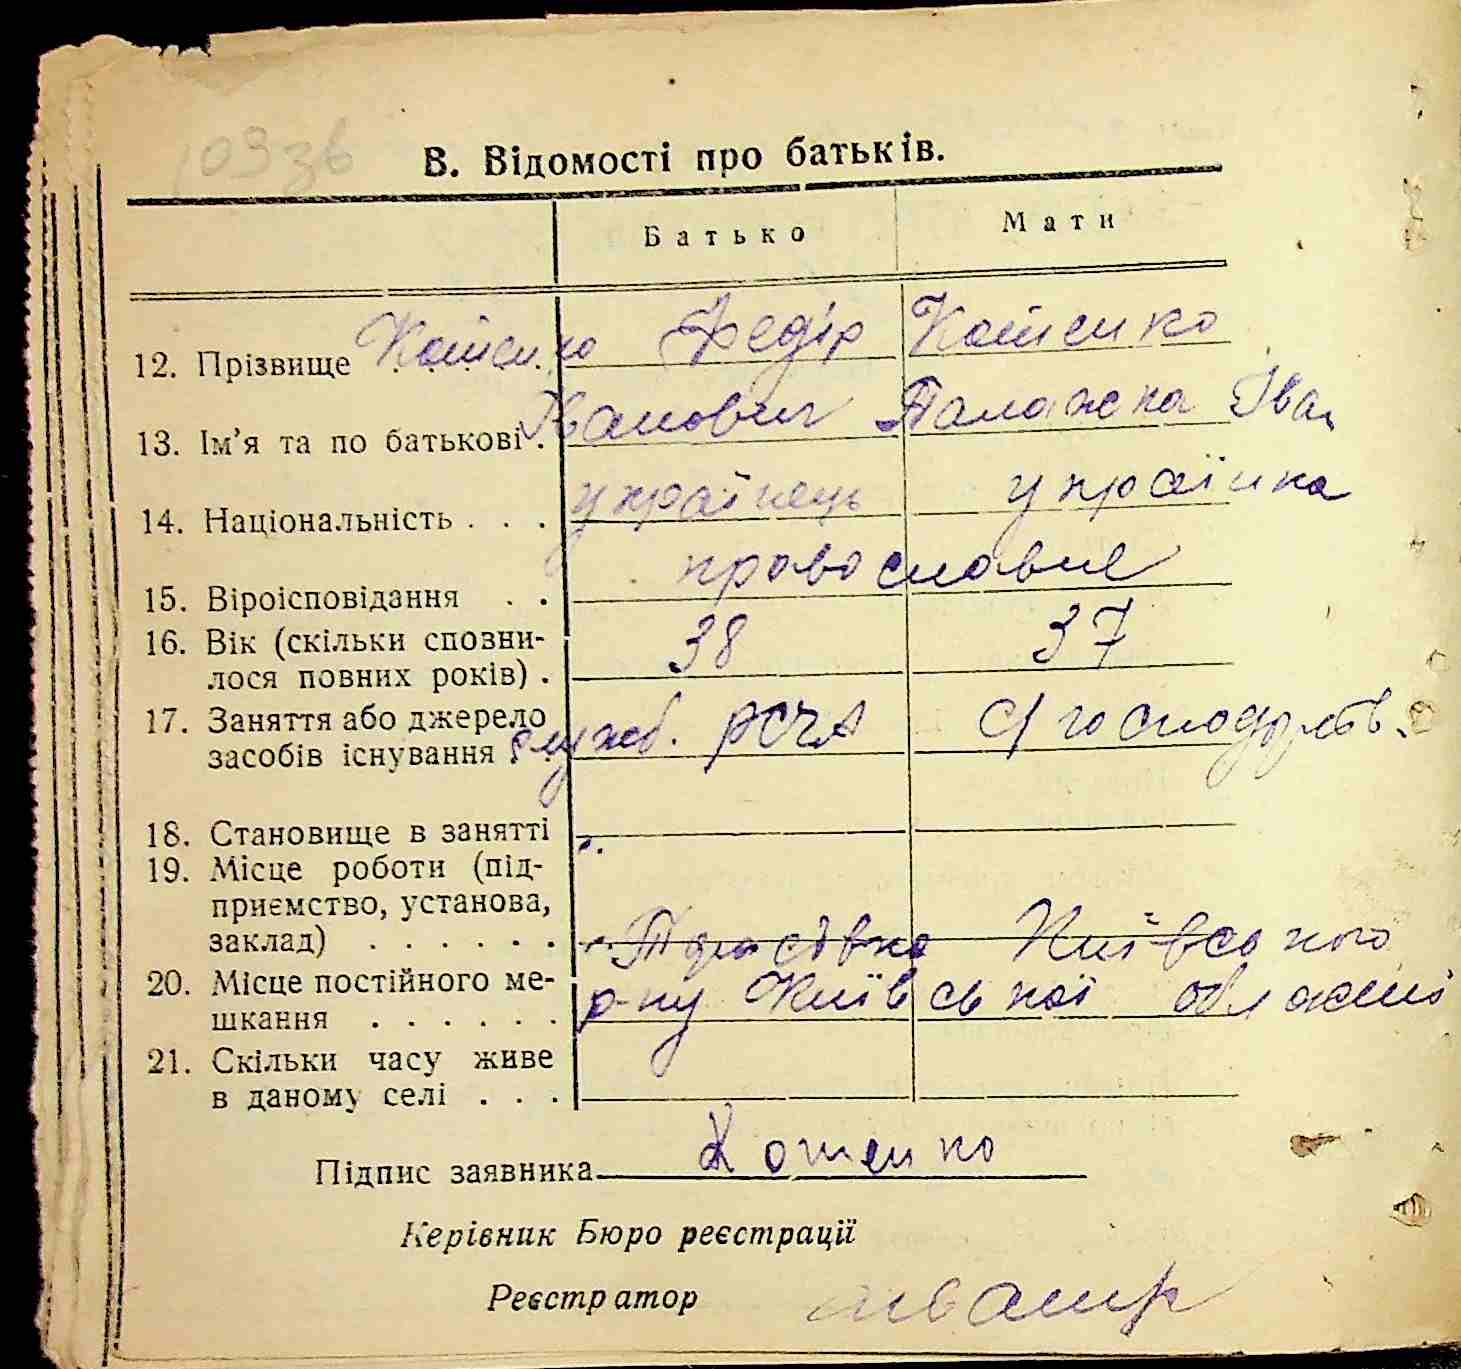 В. Відомості про батьків.
Батько Мати
12. Прізвище Котенко Федір Котенко
13. Ім’я та по батькові . Іванович Палажка Іва
14. Національність . . . українець українка
15. Віроісповідання . . православне
16. Вік (скільки спозни-
лося повних років) . 38 37
17. Заняття або джерело
засобів існування служб. РСЧА С/господарств.
18. Становище в занятті
19. Місце роботи (під-
приємство, установа,
заклад) . . . . . . Київського
20. Місце постійного ме-
шкання . . . . . . р-ну Київської області
21. Скільки часу живе
в даному селі . . .
Підпис заявника Котенко
Керівник Бюро реєстрації
Реєстратор